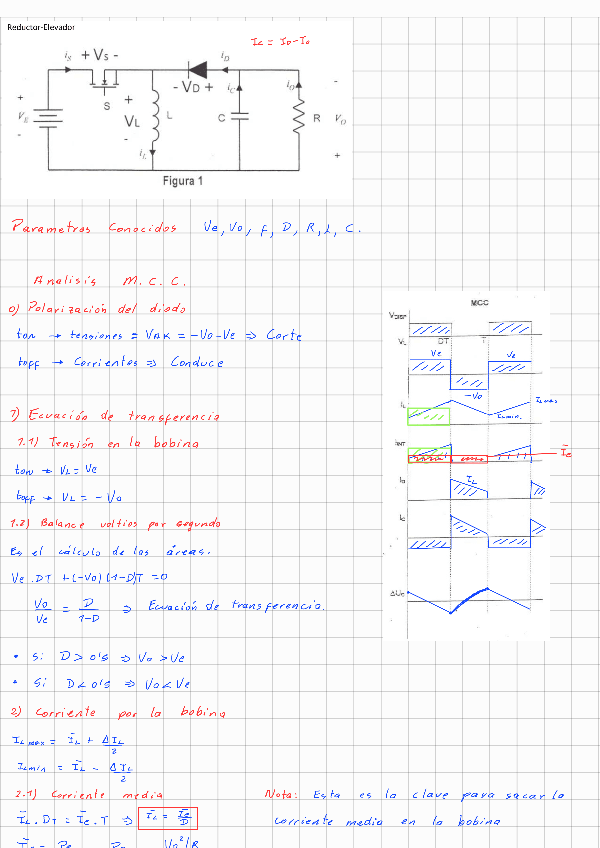 Reductor-Elevador
Ic = ID - Io
iS + VS - iD
- VD + iC iO -
+ S + L C R VO
VE VL
- - iL +
Figura 1
Parametros Conocidos Ve, Vo, F, D, R, L, C.
Analisis M.C.C.
0) Polarización del diodo
ton → tensiones = VAK = -Vo-Ve ⇒ Corte
toff → Corrientes ⇒ Conduce
1) Ecuación de transferencia
1.1) Tensión en la bobina
ton → VL = Ve
toff → VL = -Vo
1.2) Balance voltios por segundo
Es el cálculo de las áreas.
Ve . DT + (-Vo) (1-D)T = 0
Vo/Ve = D/1-D ⇒ Ecuación de transferencia.
• Si D > 0's ⇒ Vo > Ve
• Si D < 0's ⇒ Vo < Ve
2) Corriente por la bobina
ILmax = ĪL + ΔIL/2
ILmin = ĪL - ΔIL/2
2.1) Corriente media
ĪL . DT = Īe . T ⇒ ĪL = Īe/D
Nota: Esta es la clave para sacar la
corriente media en la bobina
MCC
VDISP
VL DT T
Ve Ve
-Vo
iL ILmax
ILmin.
iINT Īe
iD IL
iC
ΔUc